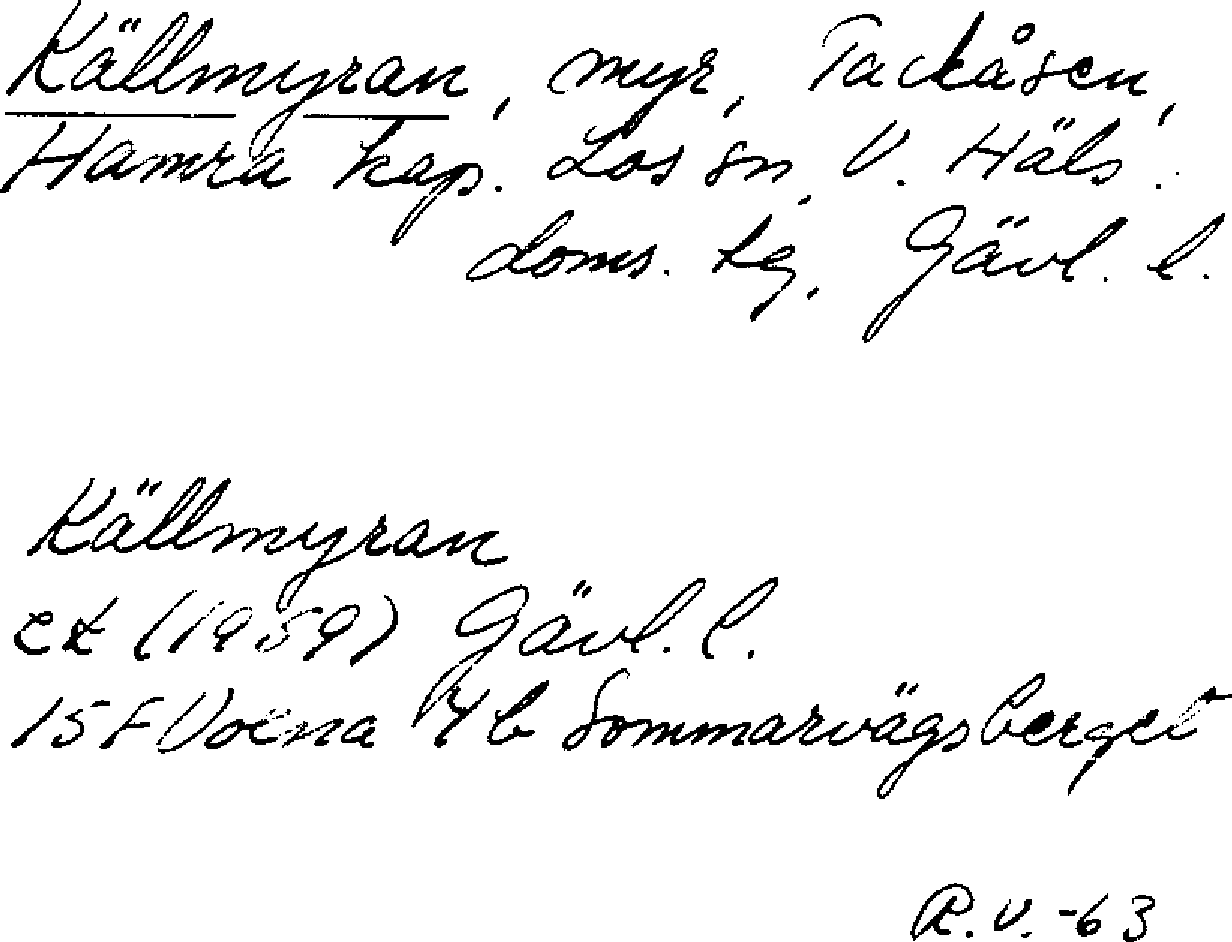 Källmyran, myr, Tackåsen,
Hamra kap. Los sn, V. Häls.
doms. tg, Gävl. l.
Källmyran
ek (1959) Gävl. l.
15F Voxna 4b Sommarvägsberget
R.V. -63